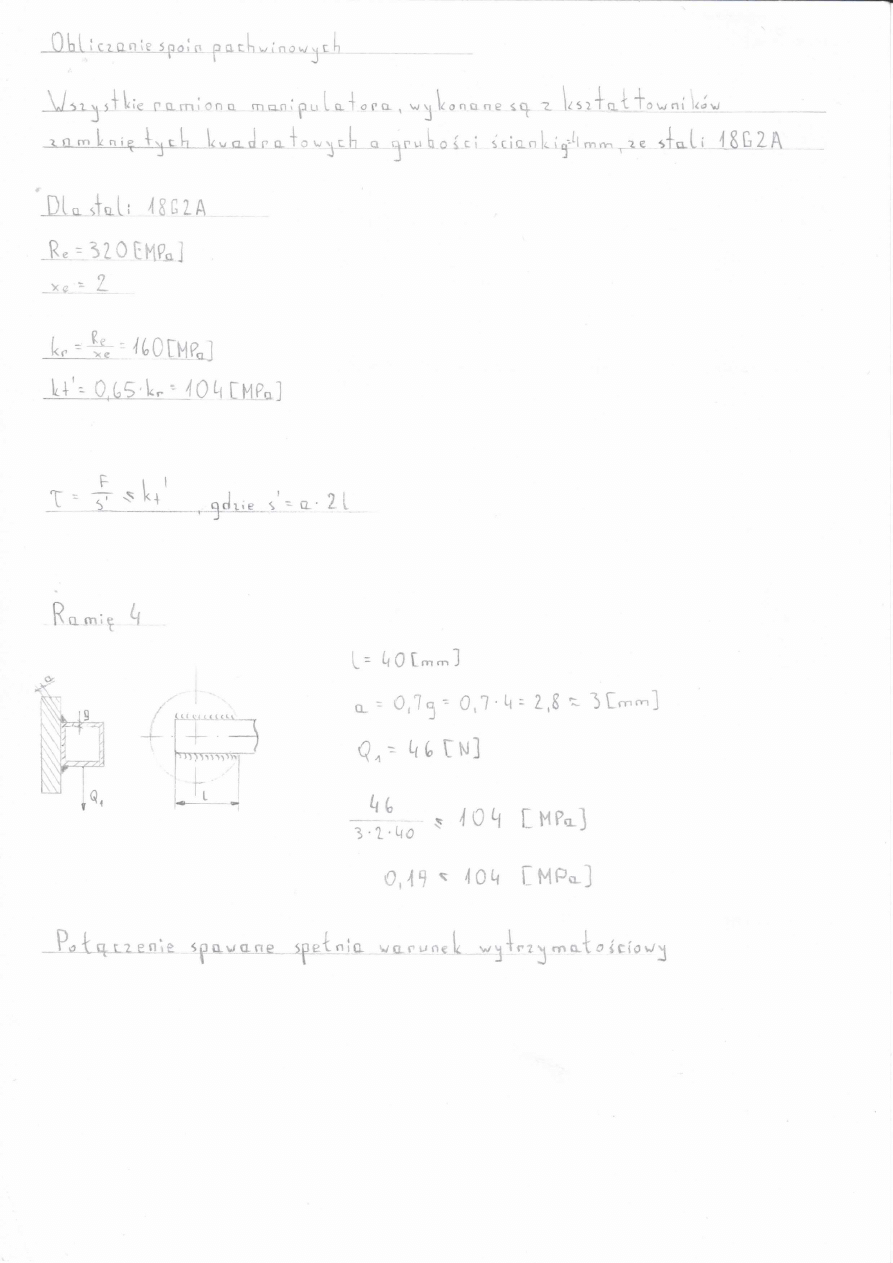 Obliczanie spoin pachwinowych
Wszystkie ramiona manipulatora, wykonane są z kształtowników
zamkniętych kwadratowych o grubości ścianki g=4mm, ze stali 18G2A
Dla stali 18G2A
Re = 320 [MPa]
xe = 2
kr = Re/xe = 160 [MPa]
kt' = 0,65 · kr = 104 [MPa]
τ = F/s' ≤ kt' , gdzie s' = a · 2l
Ramię 4
l = 40 [mm]
a = 0,7g = 0,7 · 4 = 2,8 ≈ 3 [mm]
Q1 = 46 [N]
46/3·2·40 ≤ 104 [MPa]
0,19 ≤ 104 [MPa]
a
g
Q1
l
Połączenie spawane spełnia warunek wytrzymałościowy